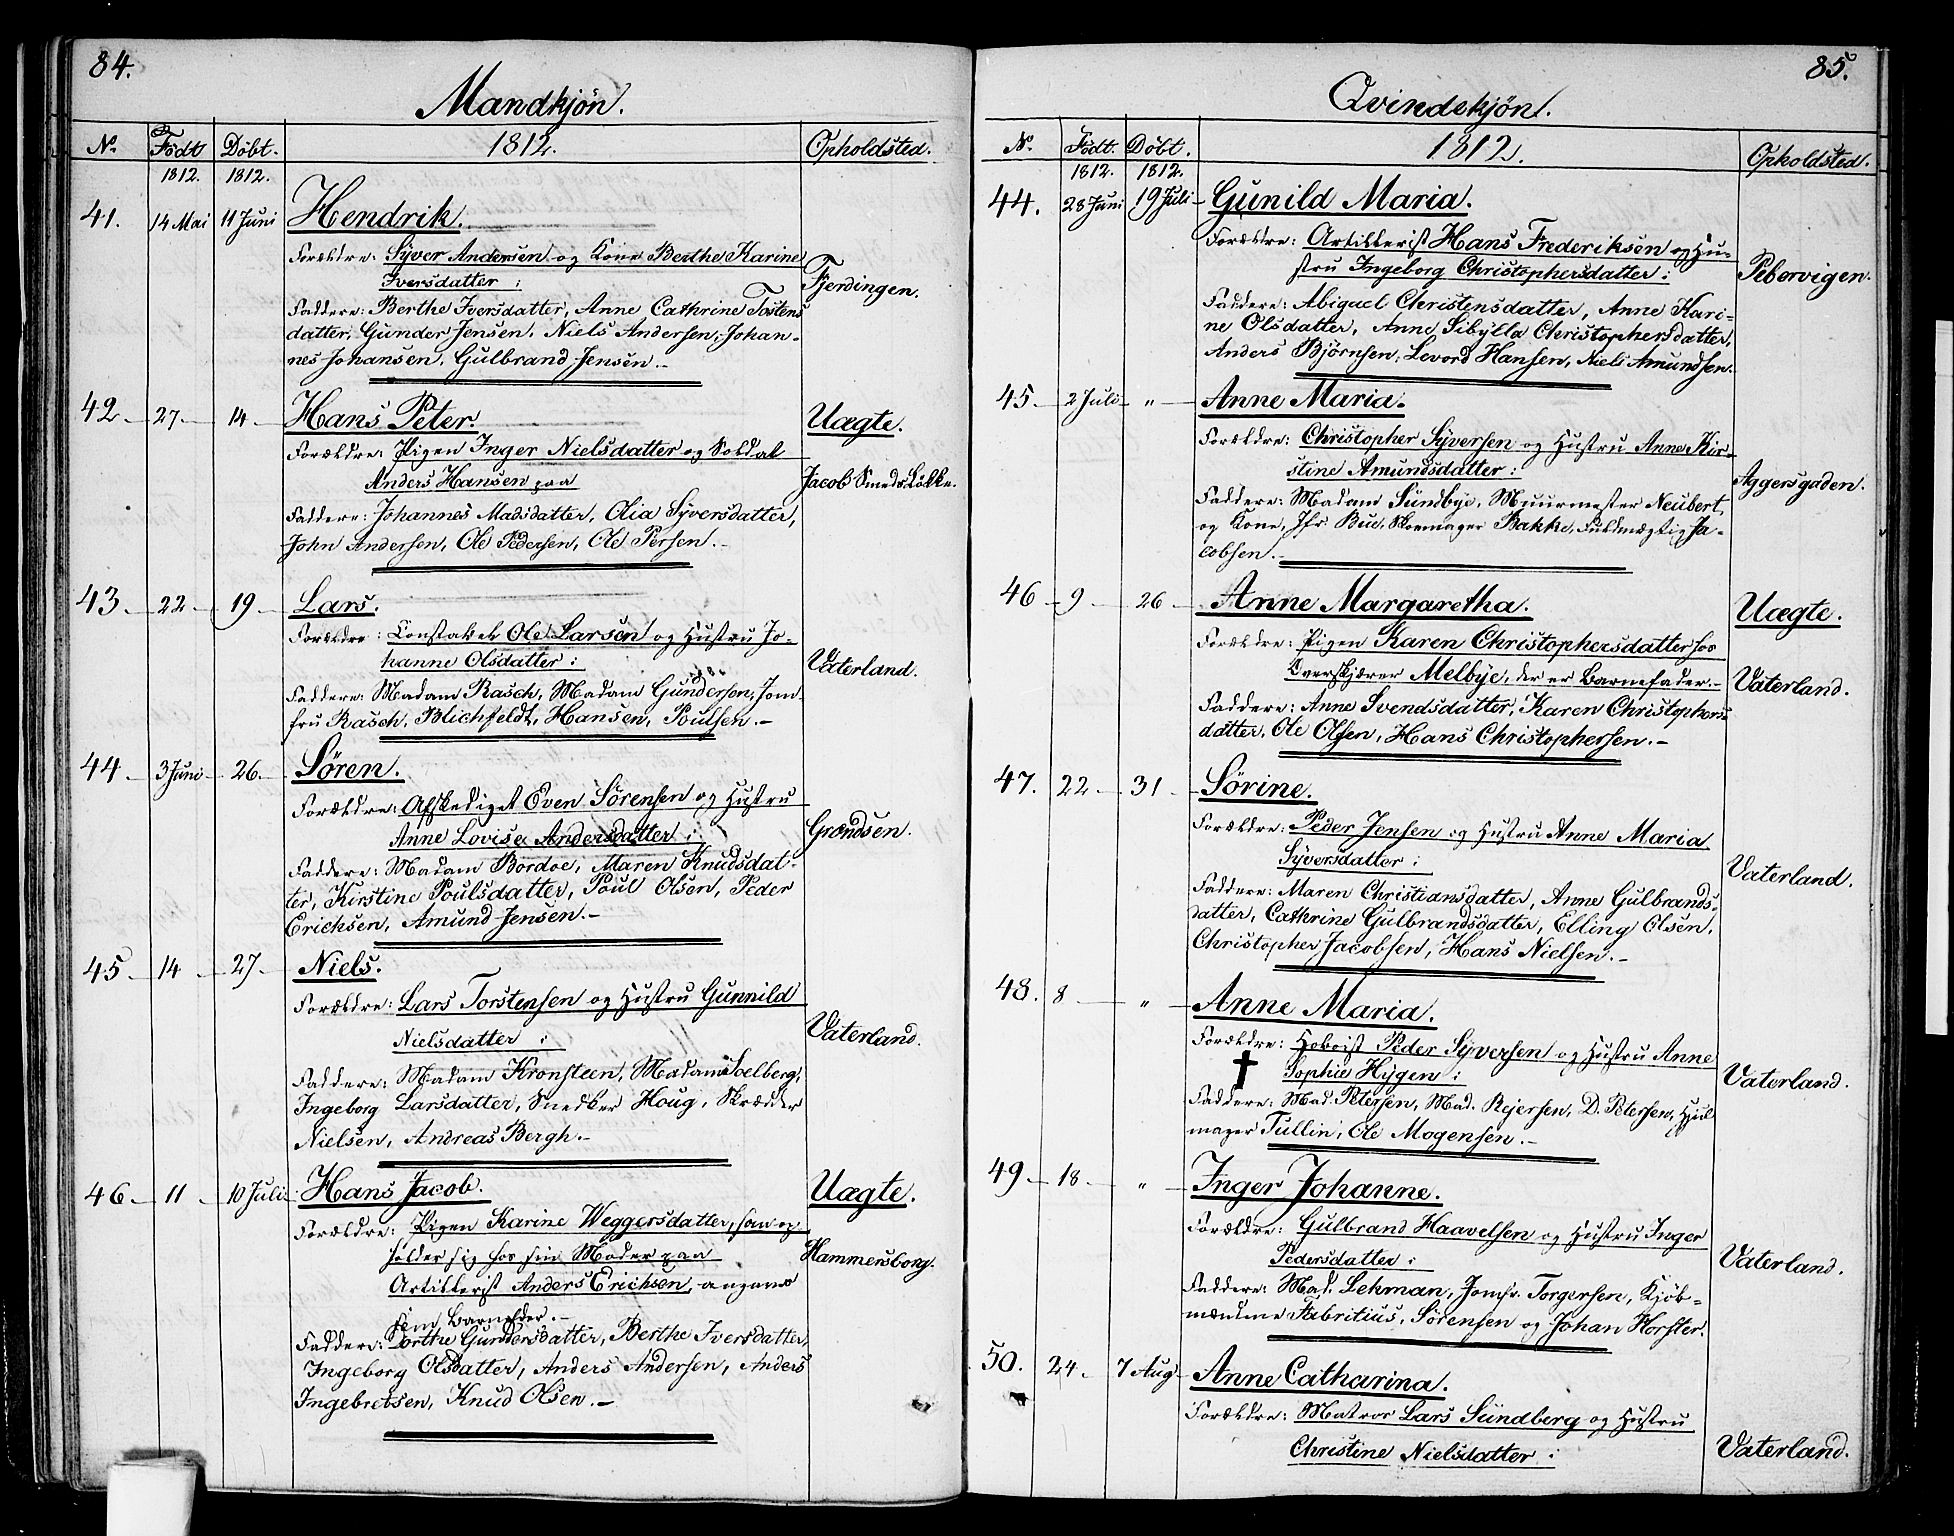 84.
Mandkjön.
No. Födt Döbt. 1812. Opholdsted.
1812. 1812.
41. 14 Mai 11 Juni Hendrik.
Forældre: Syver Andersen og Kone Berthe Karine
Iversdatter :
Fjerdingen.
Faddere: Berthe Iversdatter, Anne Cathrine Tostens
datter, Gunder Jensen, Niels Andersen, Johan-
nes Johansen, Gulbrand Jensen.-
42 27 14 Hans Peter. Uægte.
Forældre: Pigen Inger Nielsdatter og Soldat
Anders Hansen paa Jacob Smeds Lökke.
Faddere: Johannes Madsdatter, Olia Syversdatter,
John Andersen, Ole Pedersen, Ole Persen.-
43 22 19 Lars.
Forældre: Constabel Ole Larsen og Hustru Jo-
hanne Olsdatter : Vaterland.
Faddere: Madam Rasch, Madam Gundersen, Jom-
fru Rasch, Blichfeldt, Hansen, Poulsen.-
44 3 Juni 26. Sören.
Forældre: Afskediget Even Sörensen og Hustru
Anne Lovise Andersdatter : Grændsen.
Faddere: Madam Bordoe, Maren Knudsdat-
ter, Kirstine Poulsdatter, Poul Olsen, Peder
Erichsen, Amund Jensen.-
45 14 27 Niels.
Forældre: Lars Torstensen og Hustru Gunnild
Nielsdatter : Vaterland.
Faddere: Madam Kronsteen, Madam Soelberg,
Ingeborg Larsdatter, Snedker Houg, Skrædder
Nielsen, Andreas Bergh.-
46 11 10 Juli Hans Jacob. Uægte.
Forældre: Pigen Karine Weggersdatter, som op-
holder sig hos sin Moder paa Hammersborg.
Artillerist Anders Erichsen, angaves
som Barnefader.-
Faddere: Dorthe Gundersdatter, Berthe Iversdatter,
Ingeborg Olsdatter, Anders Andersen, Anders
Ingebretsen, Knud Olsen.-
85.
Qvindekjön.
No. Födt. Döbt. 1812. Opholdsted.
1812. 1812.
44. 28 Juni 19 Juli Gunild Maria.
Forældre: Artillerist Hans Frederiksen og Hu-
stru Ingeborg Christophersdatter : Pebervigen.
Faddere: Abiguel Christensdatter, Anne Kari-
ne Olsdatter, Anne Sibylla Christophersdatter,
Anders Björnsen, Levord Hansen, Niels Amundsen.
45 2 Juli " Anne Maria.
Forældre: Christopher Syversen og Hustru Anne Kir-
stine Amundsdatter : Aggersgaden.
Faddere: Madam Sundbye, Muurmester Neubert
og Kone, Jfr. Bue, Skomager Bakke, Fuldmægtig Ja-
cobsen.-
46 9 26 Anne Margaretha. Uægte.
Forældre: Pigen Karen Christophersdatter hos
Overskjærer Melbye, der er Barnefader.- Vaterland.
Faddere: Anne Svendsdatter, Karen Christophers-
datter, Ole Olsen, Hans Christophersen.-
47. 22 31 Sörine.
Forældre: Peder Jensen og Hustru Anne Maria
Syversdatter : Vaterland.
Faddere: Maren Christiansdatter, Anne Gulbrands-
datter, Cathrine Gulbrandsdatter, Elling Olsen,
Christopher Jacobsen, Hans Nielsen.-
48. 8 " Anne Maria.
Forældre: Hoboist Peder Syversen og Hustru Anne
Sophie Hygen : Vaterland.
Faddere: Mad. Petersen, Mad. Rejersen, D. Petersen, Hjul
mager Tullin, Ole Mogensen.-
49 18 " Inger Johanne.
Forældre: Gulbrand Haavelsen og Hustru Inger
Pedersdatter : Vaterland.
Faddere: Mad. Lehman, Jomfr. Torgersen, Kjöb-
mændene Fabritius, Sörensen og Johan Horster.
50. 24 7 Aug Anne Catharina.
Forældre: Matros Lars Sundberg og Hustru
Christine Nielsdatter : Vaterland.